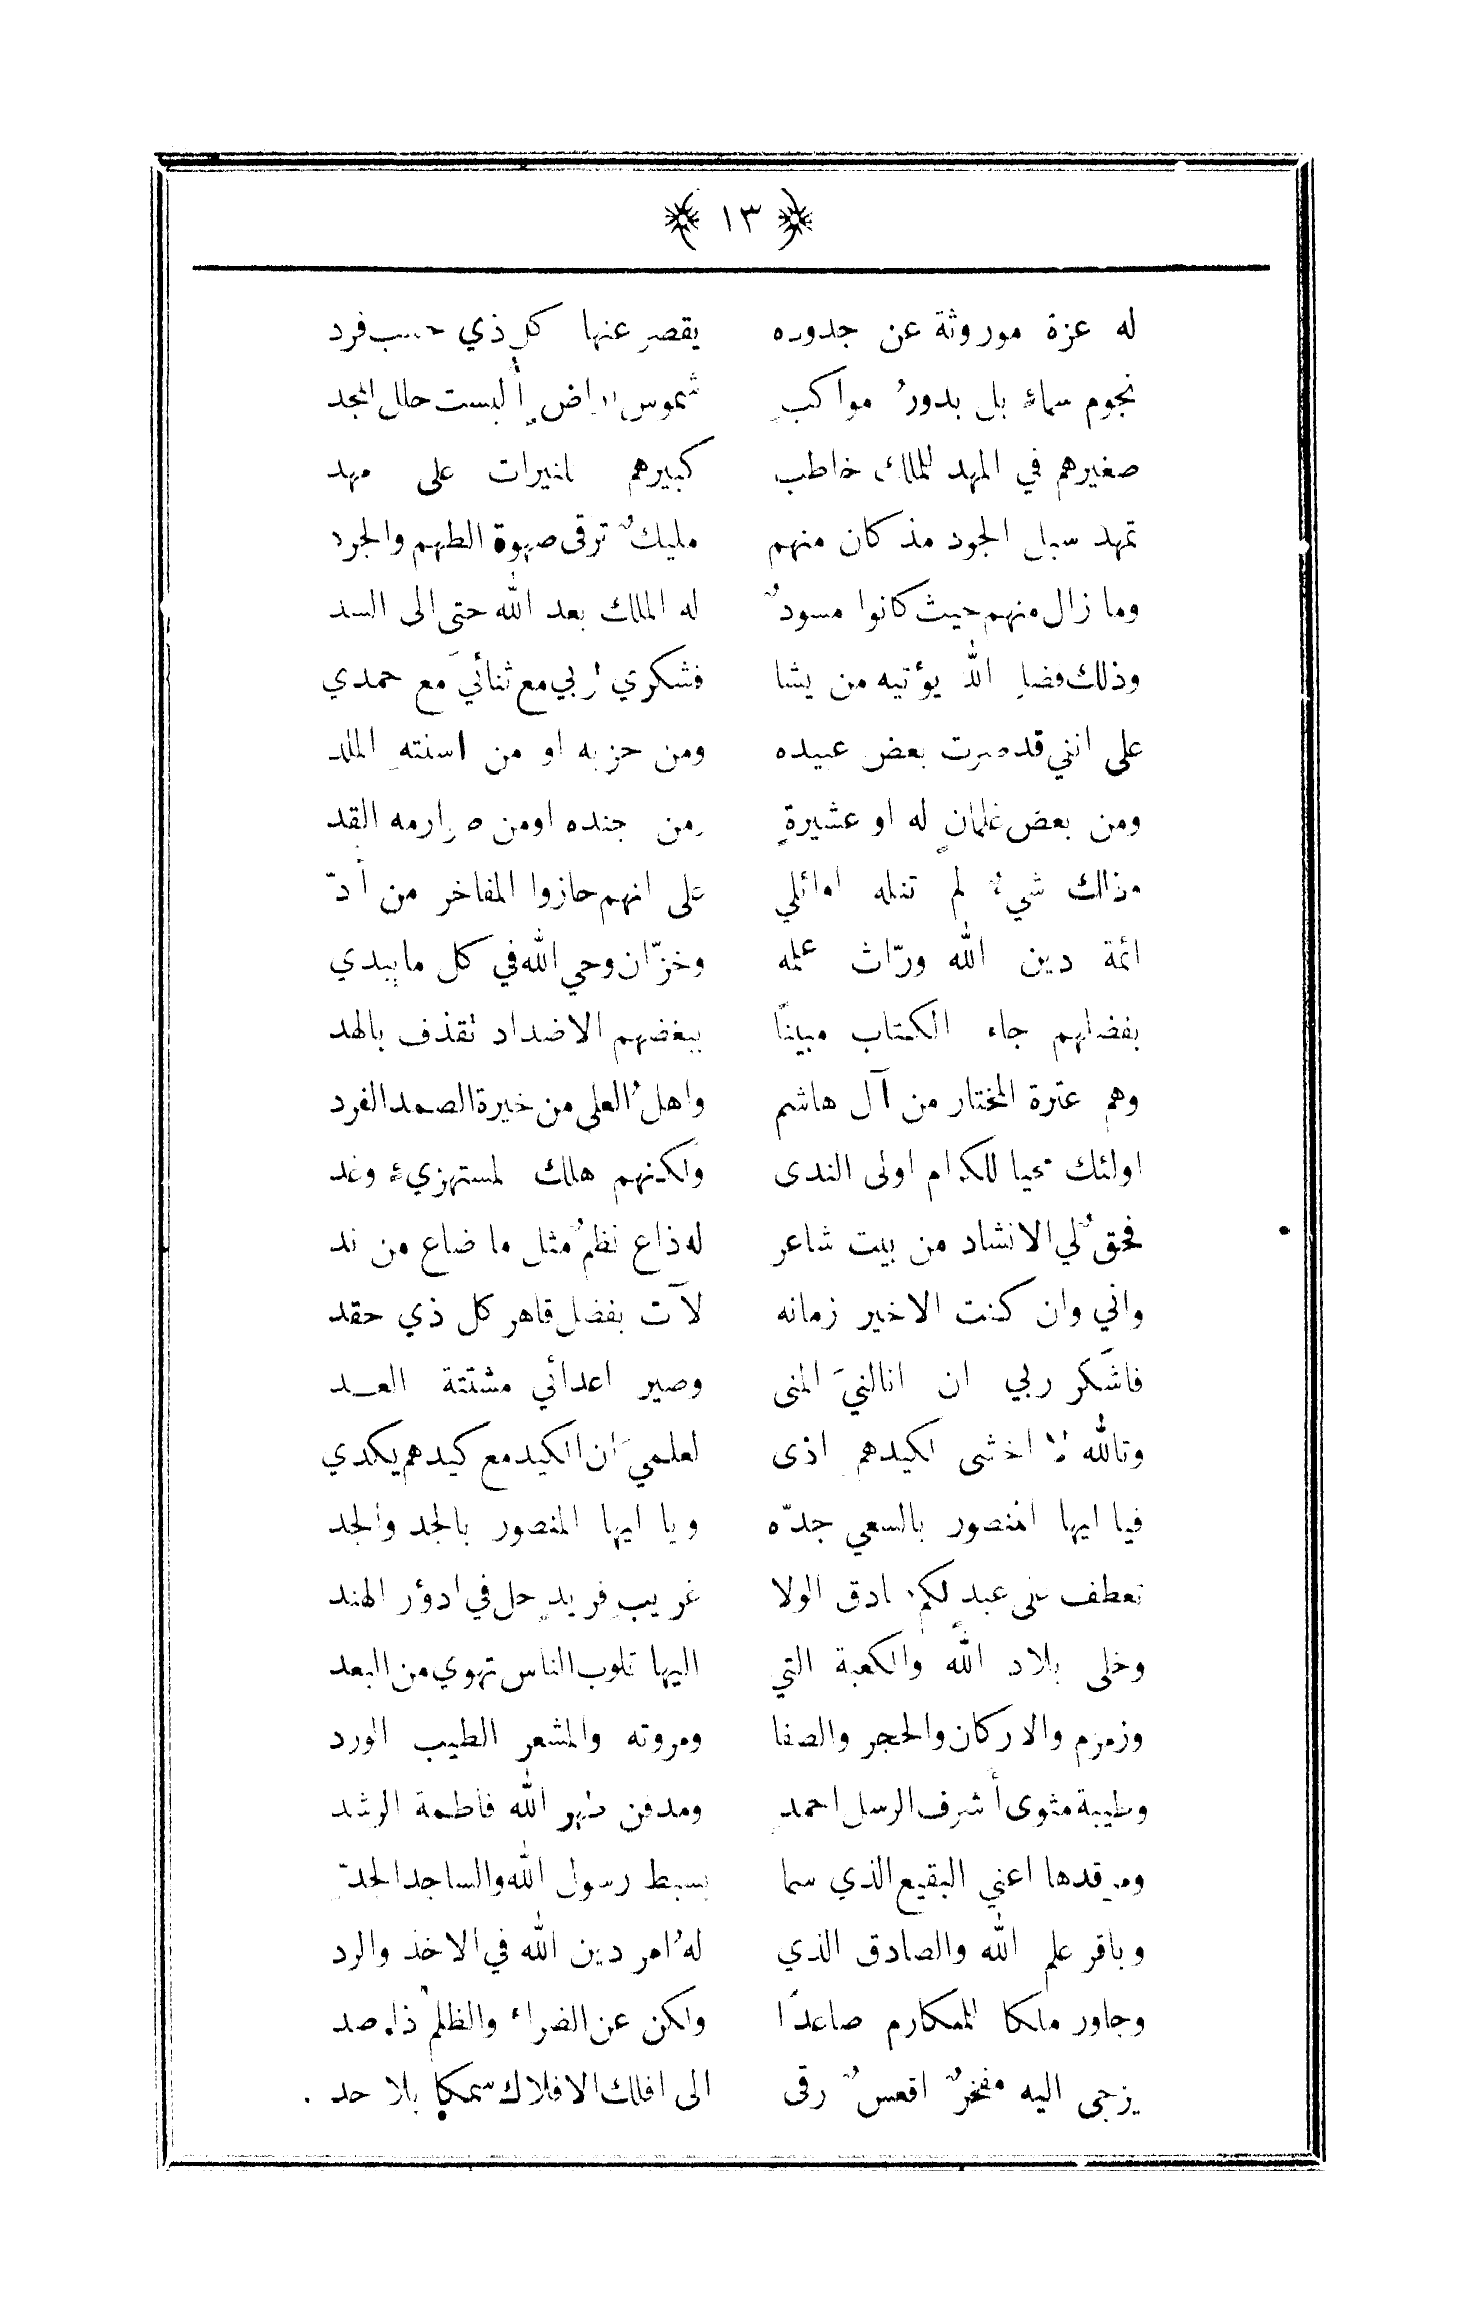 ١٣
له عزة موروثة عن جدوده يقصر عنها كل ذي فرد
نجوم سماء بل بدورُ مواكبِ شموس اراضٍ أُلبست حلل المجد
صغيرهم في المهد للملك خاطب كبيرهم للنيرات على مهد
تمهد سبل الجود مذ كان منهم مليكٌ ترقى صهوة الطهم والجرد
وما زال منهم حيث كانوا مسودٌ له الملك بعد الله حتى الى السد
وذلك فضل الله يؤتيه من يشا فشكري لربي مع ثنائيَ مع حمدي
على انني قد صرت بعض عبيده ومن حزبه او من اسنته الملد
ومن بعض غلمانٍ له او عشيرةٍ ومن جنده اومن صوارمه القد
وذاك شيءٌ لم تنله اوائلي على انهم حازوا المفاخر من أدّ
ائمة دين الله ورّاث علمه وخزّان وحي الله في كل ما يبدي
بفضلهم جاء الكتاب مبينًا ببغضهم الاضداد تقذف بالهد
وهم عترة المختار من آل هاشم واهلُ العلى من خيرة الصمد الفرد
اولئك تحيا للكرام اولى الندى ولكنهم هلك لمستهزيء وغد
فحقٌ لي الانشاد من بيت شاعر له ذاع نظمٌ مثل ما ضاع من ند
واني وان كنت الاخير زمانه لآت بفضل قاهر كل ذي حقد
فاشكر ربي ان انالنيَ المنى وصير اعدائي مشتتة العـد
وتالله لا اخشى لكيدهم اذى لعلميَ ان الكيد مع كيدهم يكدي
فيا ايها المنصور بالسعي جدّه ويا ايها المنصور بالجد والجد
تعطف على عبدٍ لكم صادق الولا غريبٍ فريدٍ حل في ادؤر الهند
وخلى بلاد الله والكعبة التي اليها قلوب الناس تهوي من البعد
وزمزم والاركان والحجر والصفا ومروته والمشعر الطيب الورد
وطيبة مثوى أشرف الرسل احمد ومدفن طهر الله فاطمة الرشد
ومرقدها اعني البقيع الذي سما بسبط رسول الله والساجد الحدّ
وباقر علم الله والصادق الذي لهُ امر دين الله في الاخذ والرد
وجاور ملكا للمكارم صاعدًا ولكن عن الضراء والظلم ذا صد
يزجى اليه مفخرٌ اقعسٌ رقى الى افلك الافلاك سمكا بلا حد .